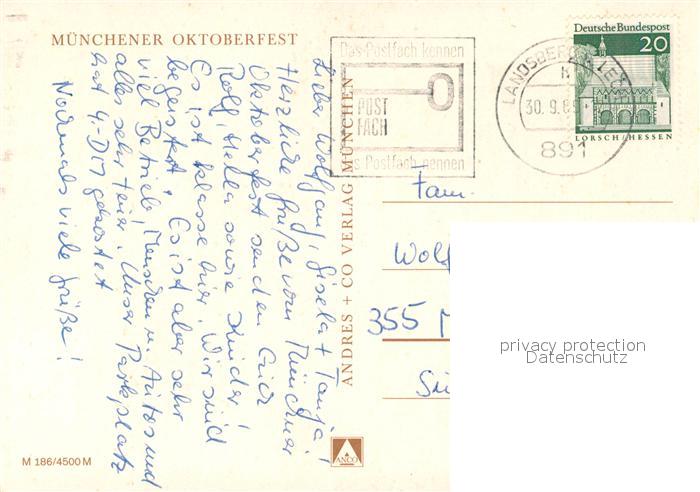 MÜNCHENER OKTOBERFEST
Lieber Wolfgang, Gisela + Tanja!
Herzliche Grüße vom Münchner
Oktoberfest senden Euch
Rolf, Hella sowie Kinder!
Es ist klasse hier. Wir sind
begeistert. Es ist aber sehr
viel Betrieb, Menschen u. Autos und
alles sehr teuer. Unser Parkplatz
hat 4,- DM gekostet
Nochmals viele Grüße!
ANDRES + CO VERLAG MÜNCHEN
M 186/4500 M
ANCO
Das Postfach kennen
POST
FACH
das Postfach nennen
LANDSBERG LECH
30. 9. 6
891
Deutsche Bundespost
20
LORSCH/HESSEN
Fam.
Wolf
355 M
privacy protection
Datenschutz